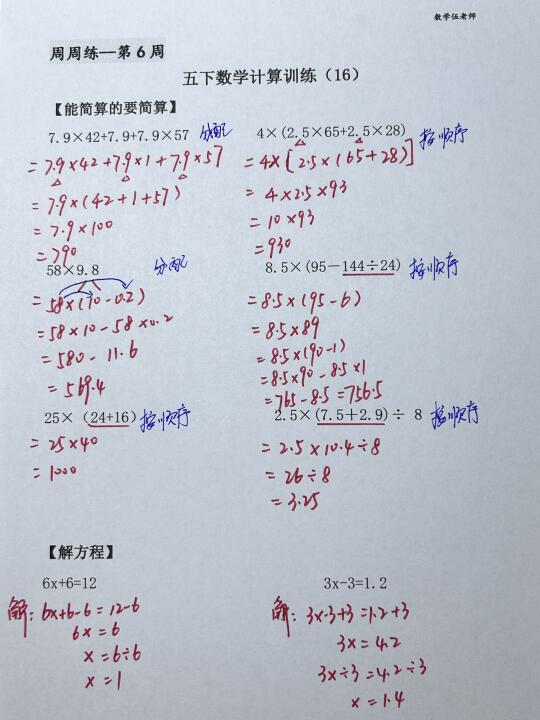 数学伍老师
周周练—第 6 周
五下数学计算训练（16）
【能简算的要简算】
7.9×42+7.9+7.9×57 分配
= 7.9×42+7.9×1+7.9×57
= 7.9×(42+1+57)
= 7.9×100
= 790
4×(2.5×65+2.5×28) 按顺序
= 4×[2.5×(65+28)]
= 4×2.5×93
= 10×93
= 930
58×9.8 分配
= 58×(10-0.2)
= 58×10-58×0.2
= 580-11.6
= 569.4
8.5×(95－144÷24) 按顺序
= 8.5×(95-6)
= 8.5×89
= 8.5×(90-1)
= 8.5×90-8.5×1
= 765-8.5=756.5
25×（24+16） 按顺序
= 25×40
= 1000
2.5×(7.5＋2.9)÷ 8 按顺序
= 2.5×10.4÷8
= 26÷8
= 3.25
【解方程】
6x+6=12
解: 6x+6-6=12-6
6x=6
x=6÷6
x=1
3x-3=1.2
解: 3x-3+3=1.2+3
3x=4.2
3x÷3=4.2÷3
x=1.4